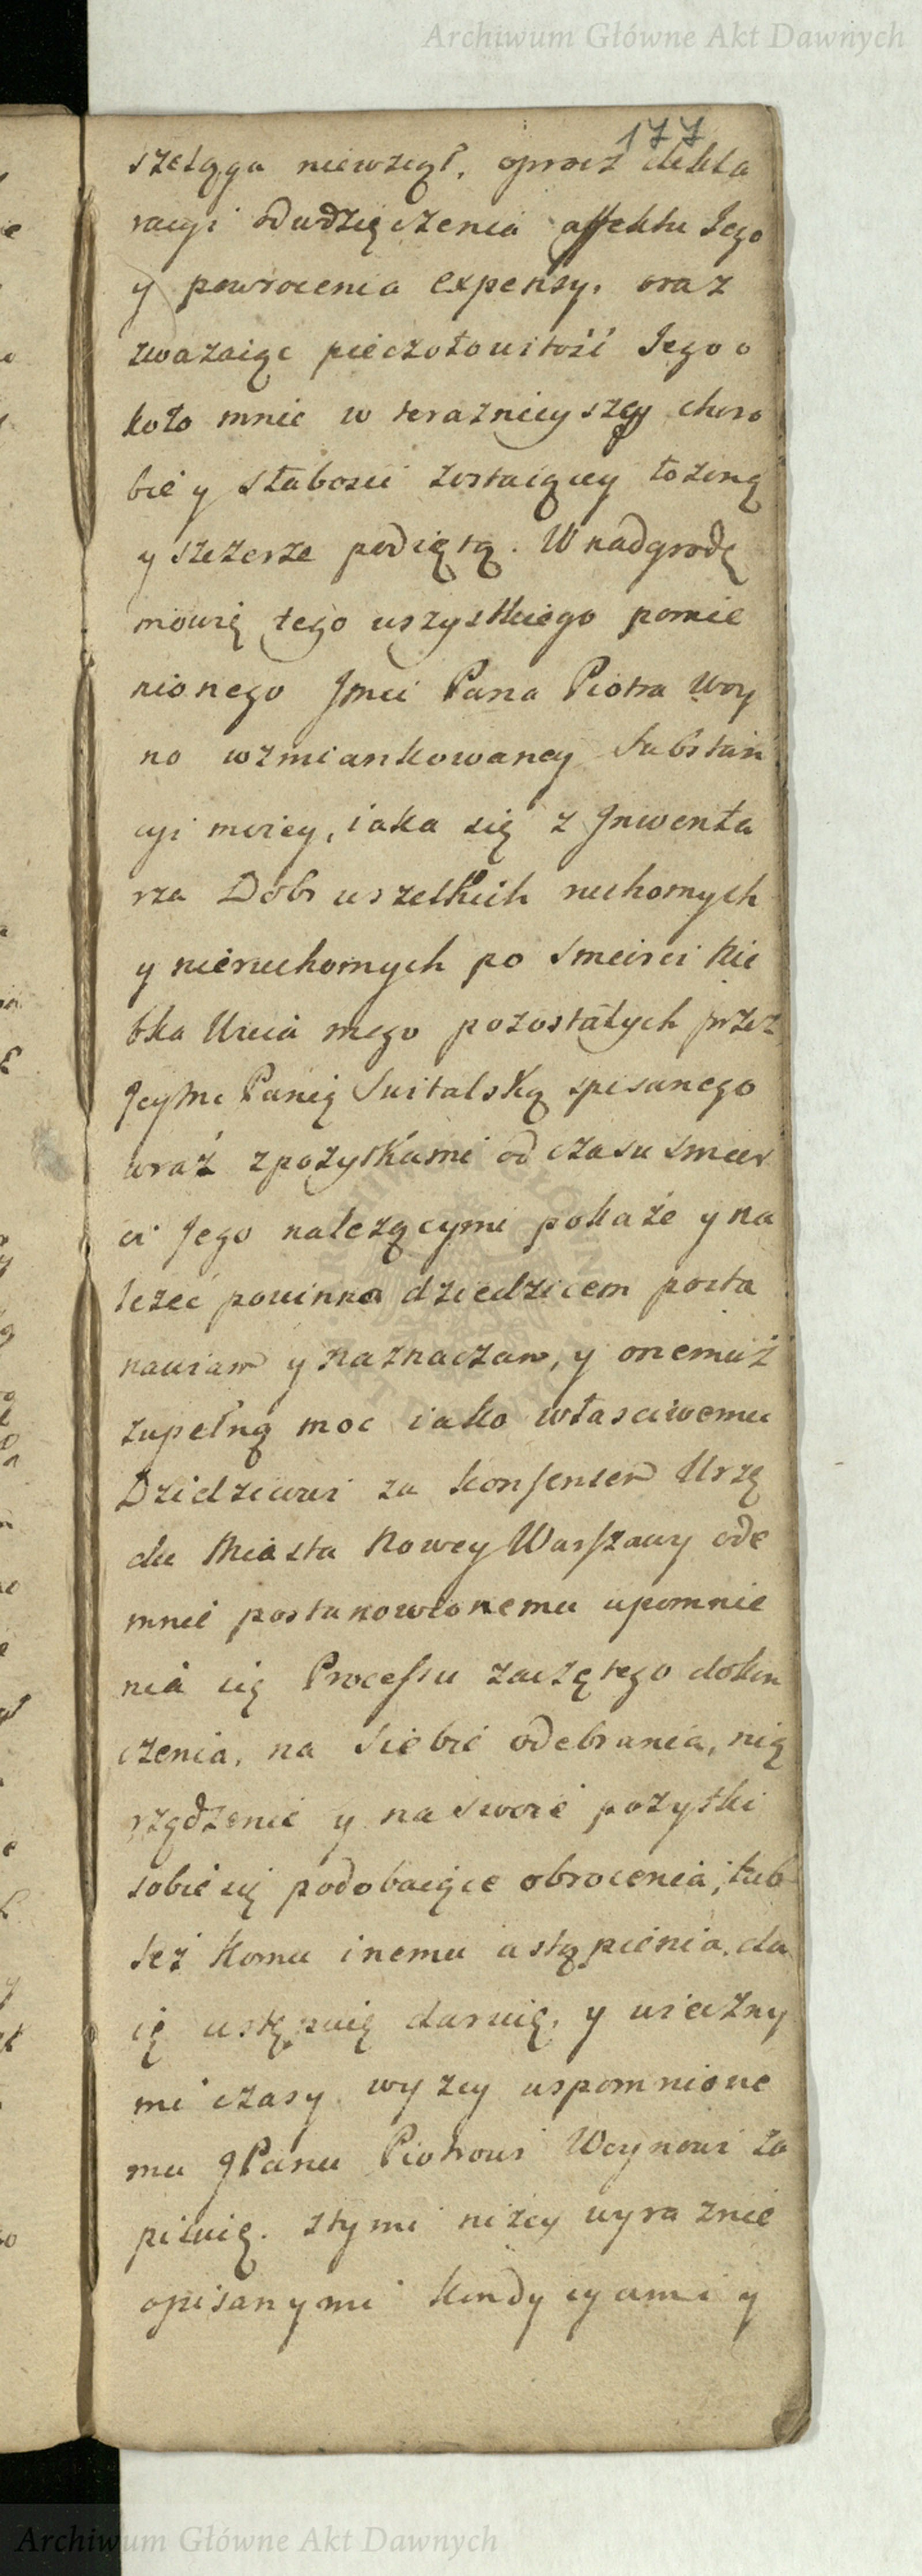 Archiwum Główne Akt Dawnych
177
szeląga niewziął, oprocz dekla
racyi odwdzięczenia affektu Jego
y powrocenia expensy, oraz
zwazaiąc pieczołowitość Jego o
koło mnie w teraznieyszey choro
bie y słabosci zostaiącey łożoną
y szczerze podiętą. W nadgrodę
mowię tego wszystkiego pomie
nionego Jmci Pana Piotra Woy
no wzmiankowaney Substan
cyi moiey, iaka się z Jnwenta
rza Dobr wszelkich ruchomych
y nieruchomych po smierci Nie
bka Wuia mego pozostałych przez
Jeymc Panią Suitalską spisanego
wraz z pozytkami od czasu smier
ci Jego należącymi pokaże y na
leżeć powinna dziedzicem posta
nawiam y naznaczam, y onemuż
zupełną moc iako własciwemu
Dziedzicowi za konsensem Urzę
du Miasta Nowey Warszawy ode
mnie postanowionemu upomnie
nia się Processu zaczętego dokon
czenia, na siebie odebrania, nią
rządzenie y na swoie pożytki
sobie się podobaiące obrocenia, lub
też komu inemu ustąpienia, da
ię ustępuię daruię, y wieczny
mi czasy wyzey wspomnione
mu JPanu Piotrowi Woynowi za
pisuię. z tymi niżey wyraznie
opisanymi kondycyami y
Archiwum Główne Akt Dawnych